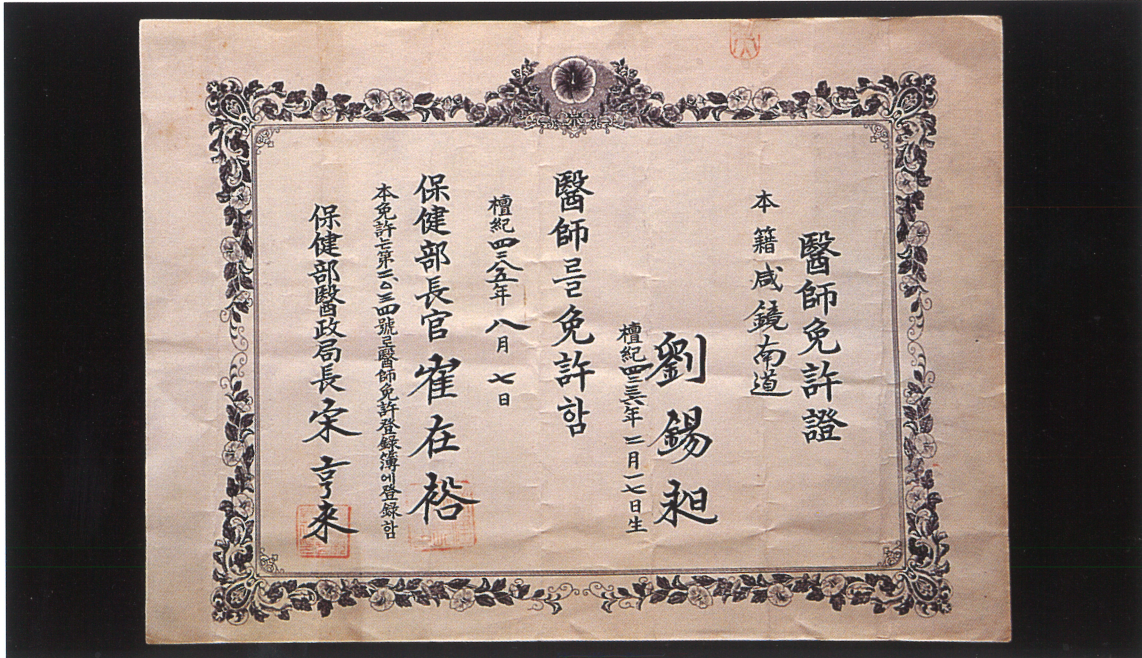 醫師免許證
本籍 咸鏡南道
劉錫昶
檀紀四二三三年二月一七日生
醫師를免許함
檀紀四二八五年八月七日
保健部長官 崔在裕
本免許는第三、〇三四號로醫師免許登錄簿에登錄함
保健部醫政局長 宋亨來